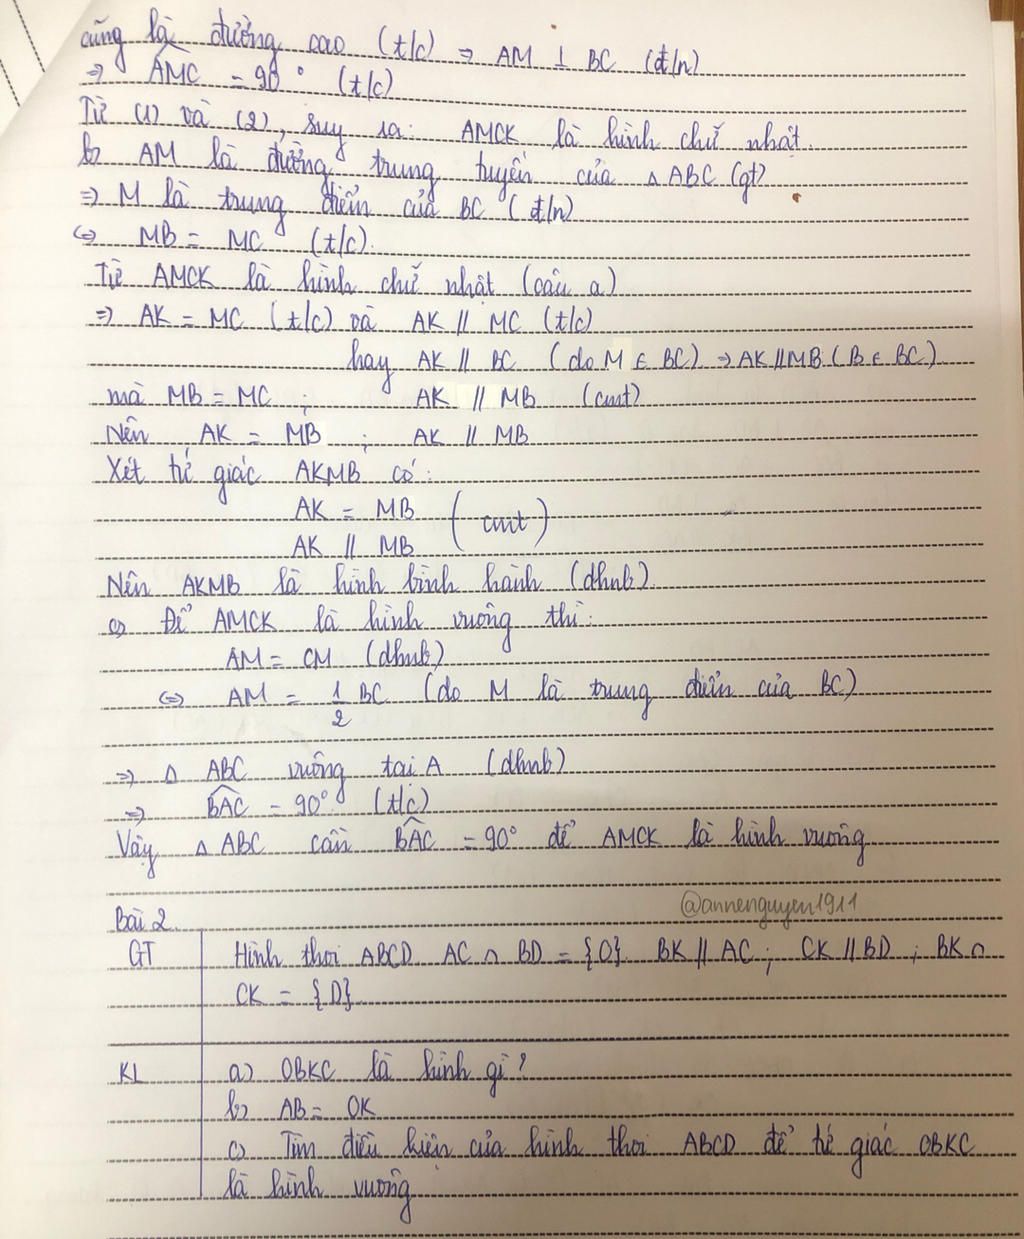 cũng là đường cao (t/c) ⇒ AM ⊥ BC (đ/n)
⇒ AMC = 90° (t/c)
Từ (1) và (2), suy ra: AMCK là hình chữ nhật.
b) AM là đường trung tuyến của △ ABC (gt)
⇒ M là trung điểm của BC (đ/n)
⇔ MB = MC (t/c).
Từ AMCK là hình chữ nhật (câu a)
⇒ AK = MC (t/c) và AK // MC (t/c)
hay AK // BC (do M ∈ BC) ⇒ AK // MB (B ∈ BC)
mà MB = MC ; AK // MB (cmt)
Nên AK = MB ; AK // MB
Xét tứ giác AKMB có:
AK = MB (cmt)
AK // MB
Nên AKMB là hình bình hành (dhnb).
c) Để AMCK là hình vuông thì:
AM = CM (dhnb)
⇔ AM = 1/2 BC (do M là trung điểm của BC)
⇒ △ ABC vuông tại A (dhnb)
⇒ BAC = 90° (t/c)
Vậy △ ABC cần BAC = 90° để AMCK là hình vuông
@annenguyen1911
Bài 2.
GT Hình thoi ABCD AC ∩ BD = {O} BK // AC ; CK // BD ; BK ∩
CK = {D}
KL a) OBKC là hình gì?
b) AB = OK
c) Tìm điều kiện của hình thoi ABCD để tứ giác OBKC
là hình vuông